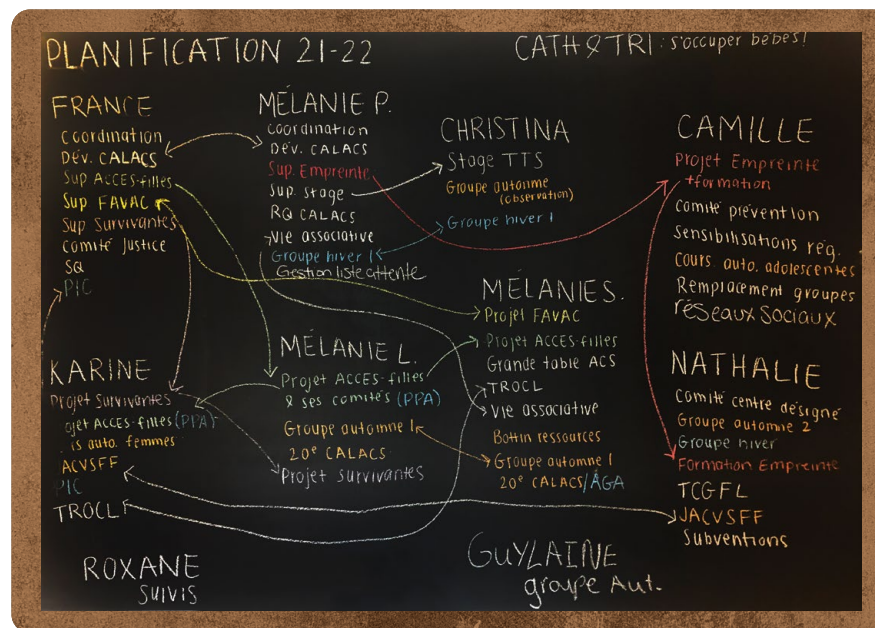 PLANIFICATION 21-22
CATH & TRI : s'occuper bébés!
FRANCE
Coordination
Dév. CALACS
Sup ACCES-filles
Sup FAVAC
Sup Survivantes
Comité Justice
SQ
PIC
MÉLANIE P.
Coordination
Dév. CALACS
Sup. Empreinte
Sup. stage
RQ CALACS
Vie associative
Groupe hiver 1
Gestion liste attente
CHRISTINA
Stage TTS
Groupe automne
(observation)
Groupe hiver 1
CAMILLE
Projet Empreinte
+formation
Comité prévention
Sensibilisations rég.
Cours auto. adolescentes
Remplacement groupes
réseaux sociaux
KARINE
Projet Survivantes
ojet ACCES-filles (PPA)
is auto. femmes
ACVSFF
PIC
TROCL
MÉLANIE L.
Projet ACCES-filles
& ses comités (PPA)
Groupe automne 1
20e CALACS
Projet survivantes
MÉLANIE S.
Projet FAVAC
Projet ACCES-filles
Grande table ACS
TROCL
Vie associative
Bottin ressources
Groupe automne 1
20e CALACS/AGA
NATHALIE
Comité centre désigné
Groupe automne 2
Groupe hiver
Formation Empreinte
TCGFL
JACVSFF
Subventions
ROXANE
SUIVIS
GUYLAINE
groupe Aut.